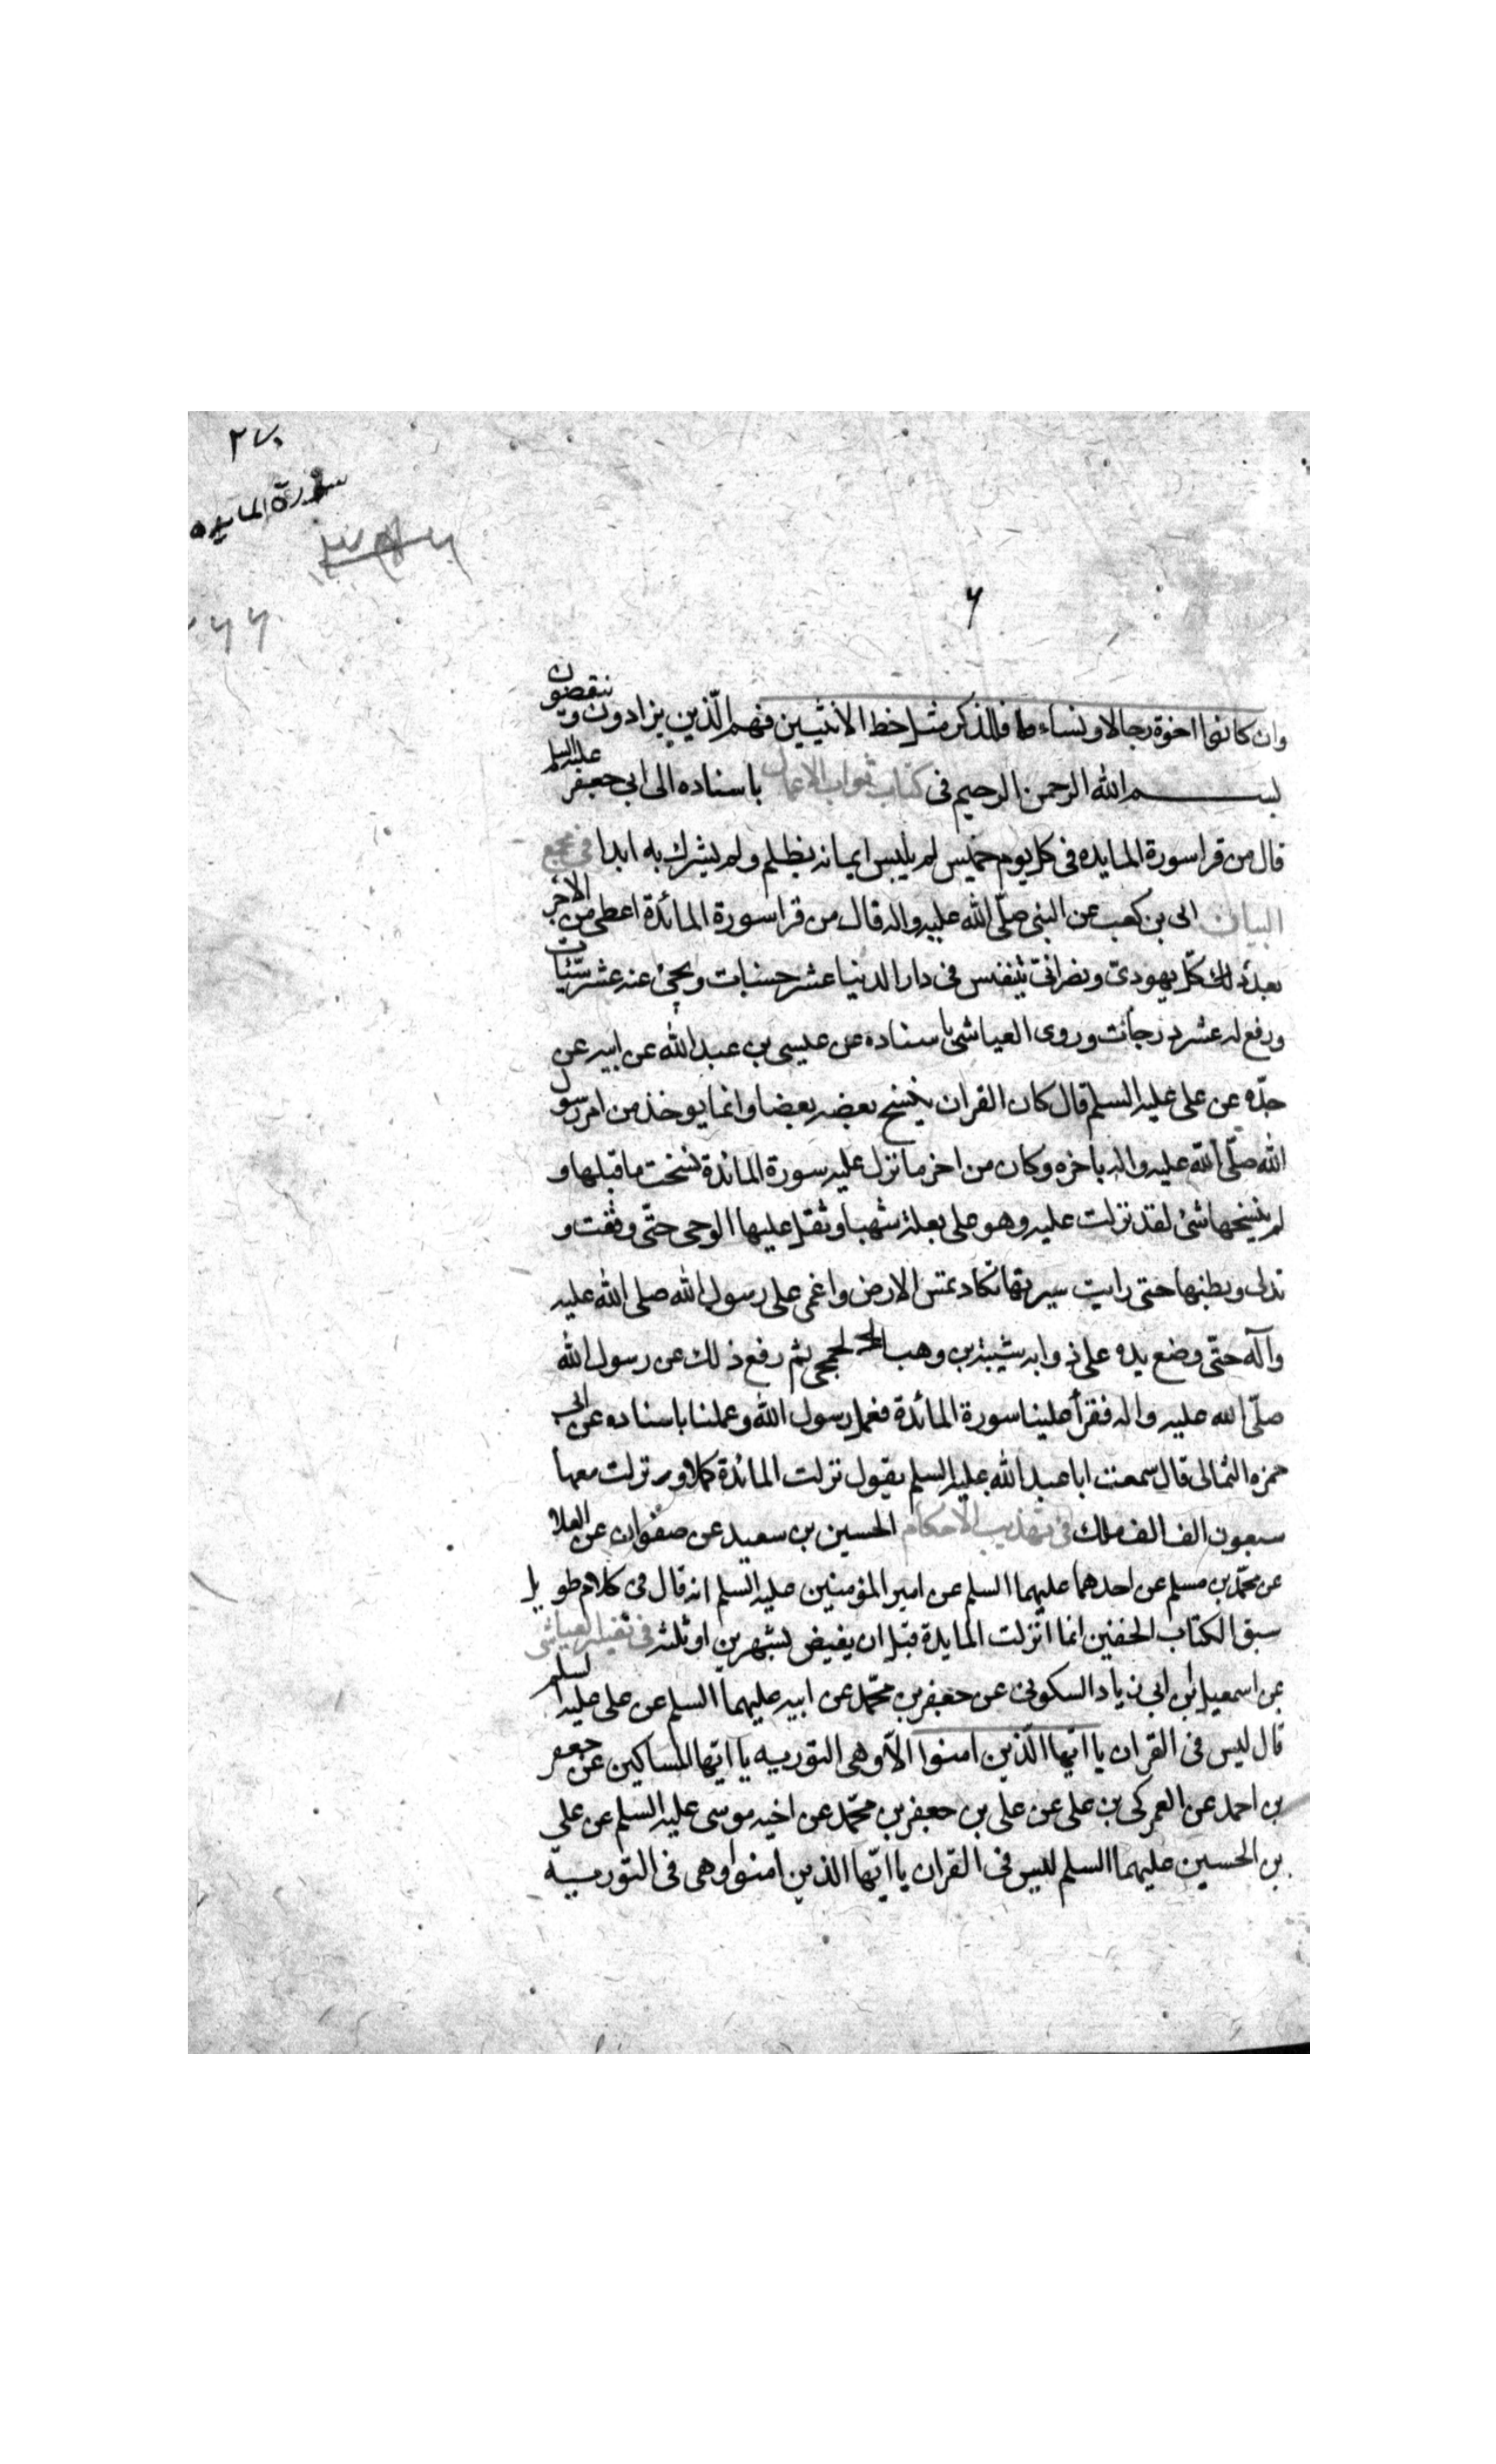 ٢٧٠
سورة المايده
٦
وان كانوا اخوة رجالا ونساء فللذكر مثل حظ الانثيين فهم الذين يزادون و ينقصون
بسم الله الرحمن الرحيم فى كتاب ثواب الاعمال باسناده الى ابى جعفر عليه السلم
قال من قرا سورة المايده فى كل يوم خميس لم يلبس ايمانه بظلم ولم يشرك به ابدا فى مجمع
البيان ابى بن كعب عن النبى صلّى الله عليه واله قال من قرا سورة المائدة اعطى من الاجر
بعدد لك كلّ يهودىّ ونصرانىّ يتنفس فى دار الدنيا عشر حسنات ومحى عنه عشر سيّئات
ورفع له عشر درجات وروى العياشى باسناده عن عيسى بن عبد الله عن ابيه عن
جدّه عن على عليه السلم قال كان القران ينسخ بعضه بعضا وانما يوخذ من امر رسول
الله صلّى الله عليه واله باخره وكان من اخر ما نزل عليه سورة المائدة نسخت ما قبلها و
لم ينسخها شئ لقد نزلت عليه وهو على بغلة شهبا وثقل عليها الوحى حتّى وقفت و
تدلى وبطنها حتى رايت سرتها تكاد تمس الارض واغمى على رسول الله صلى الله عليه
وآله حتّى وضع يده على ذوابه شيبة بن وهب الجمحى ثم رفع ذلك عن رسول الله
صلّى الله عليه واله فقرأ علينا سورة المائدة فعمل رسول الله وعملنا باسناده عن ابى
حمزه الثمالى قال سمعت ابا عبد الله عليه السلم يقول نزلت المائدة كملا ونزلت معها
سبعون الف الف ملك فى تهذيب الاحكام الحسين بن سعيد عن صفوان عن العلا
عن محمّد بن مسلم عن احدهما عليهما السلم عن امير المؤمنين عليه السلم انه قال فى كلام طويل
سبق الكتاب الخفين انما انزلت المايدة قبل ان يغيض بشهرين او ثلثه فى تفسير العياشى
عن اسمعيل بن ابى زياد السكونى عن جعفر بن محمّد عن ابيه عليهما السلم عن على عليه السلم
قال ليس فى القران يا ايّها الّذين امنوا الّا وهى التوريه يا ايّها المساكين عن جعفر
بن احمد عن العمركى بن على عن على بن جعفر بن محمّد عن اخيه موسى عليه السلم عن على
بن الحسين عليهما السلم ليس فى القران يا ايّها الذين امنوا وهى فى التوريه